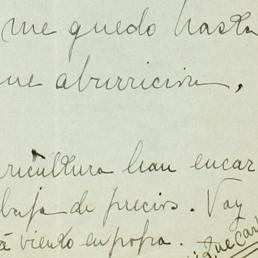 me quedo hasta
ue aburricion,
ricultura han encar
baja de precios. Voy
á viento en popa.